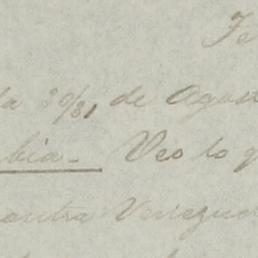 Fe
la 30/31 de Agost
bia. Veo lo q
contra Venezue